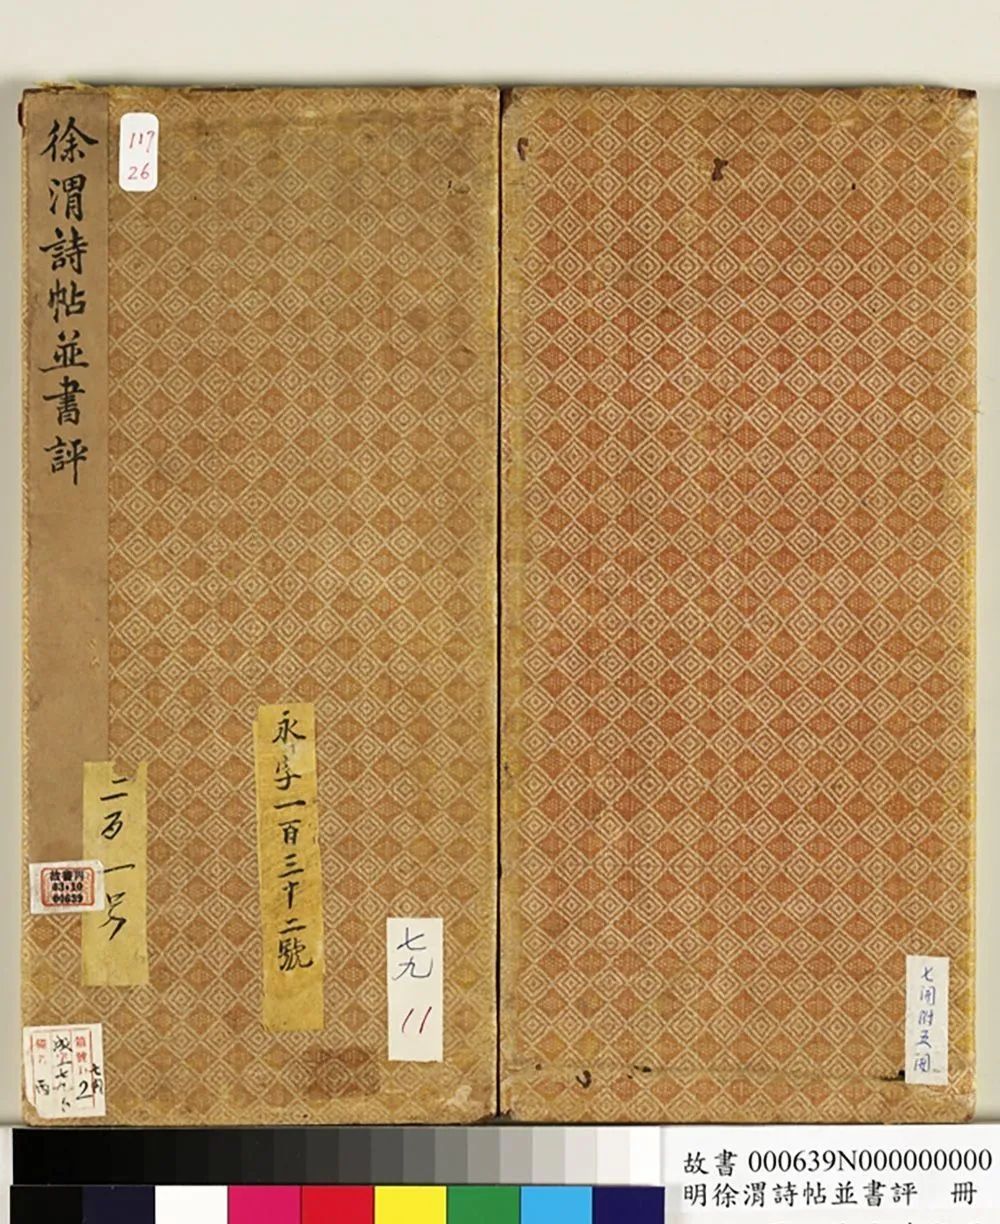 徐渭詩帖並書評
117
26
永字一百三十二號
二百一号
故書丙
03:10
00639
七九
11
七開附五開
箱號
2
七開
丙
故書 000639N000000000
明徐渭詩帖並書評 冊